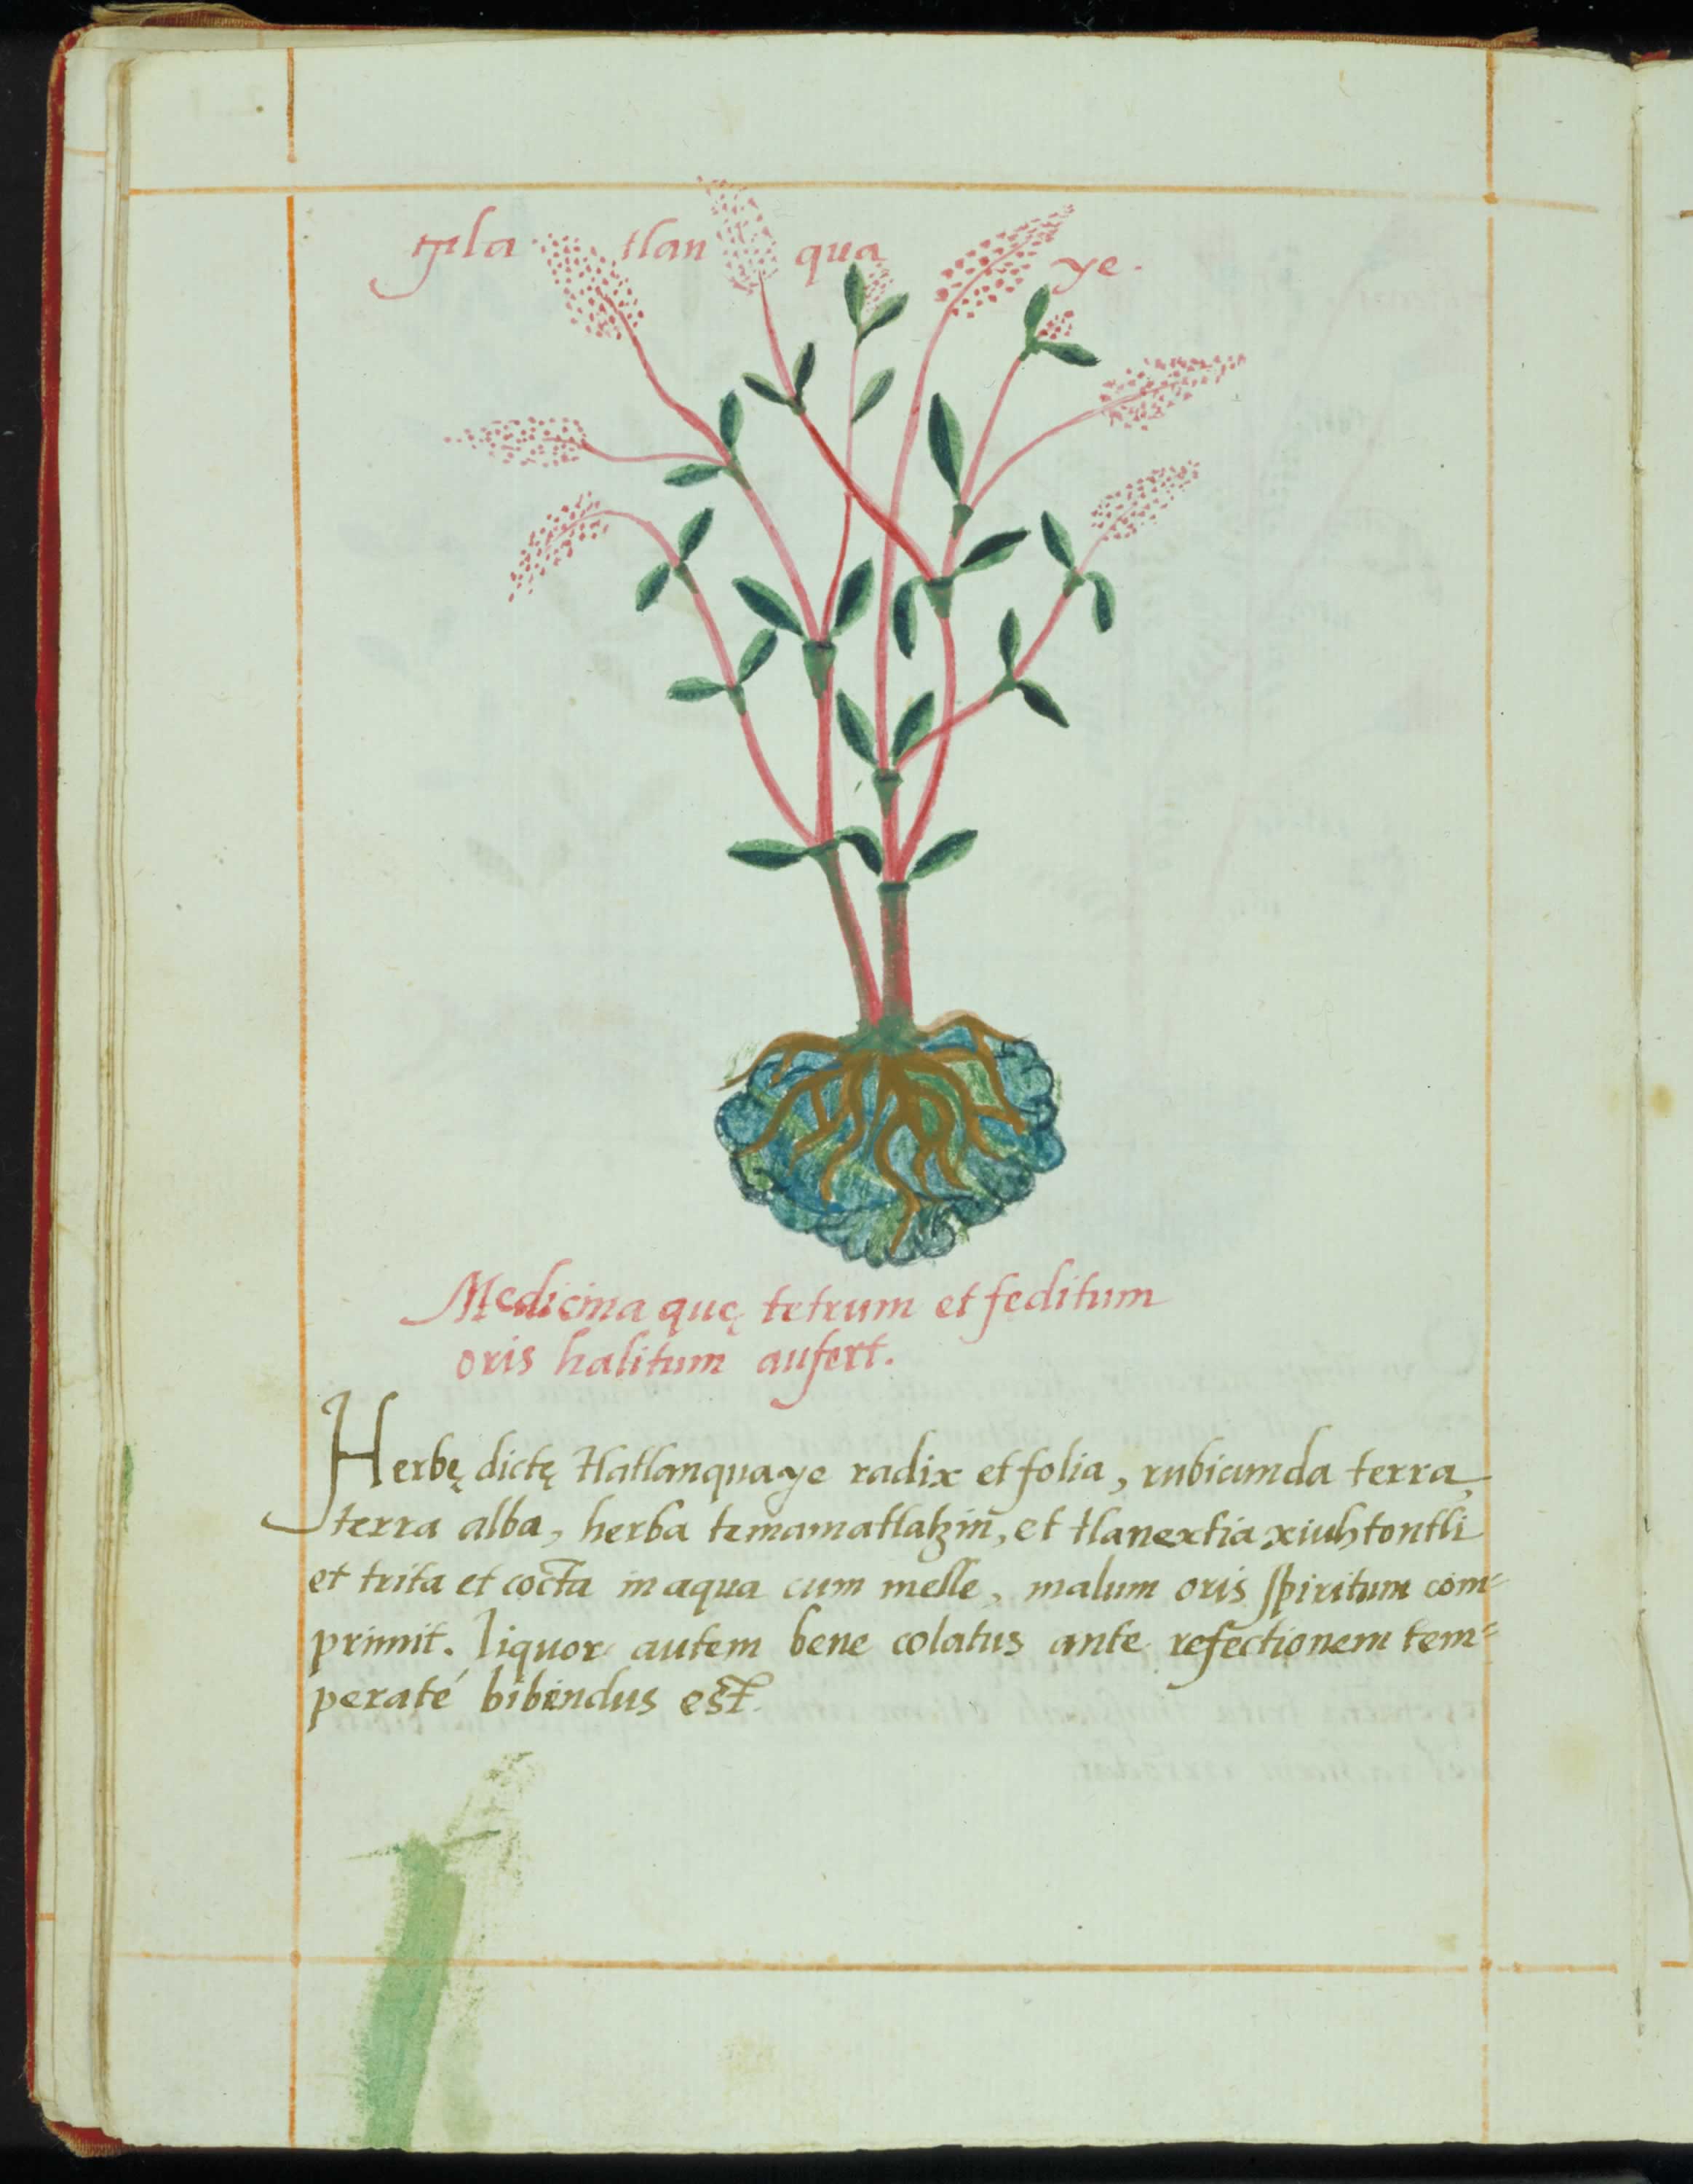 Tla tlan qua ye.
Medicina quę tetrum et feditum
oris halitum aufert.
Herbę dictę tlatlanquaye radix et folia, rubicunda terra,
terra alba, herba temamatlatzin, et tlanextia xiuhtontli
et trita et cocta in aqua cum melle, malum oris spiritum com=
primit. liquor autem bene colatus ante refectionem tem=
peraté bibendus est.